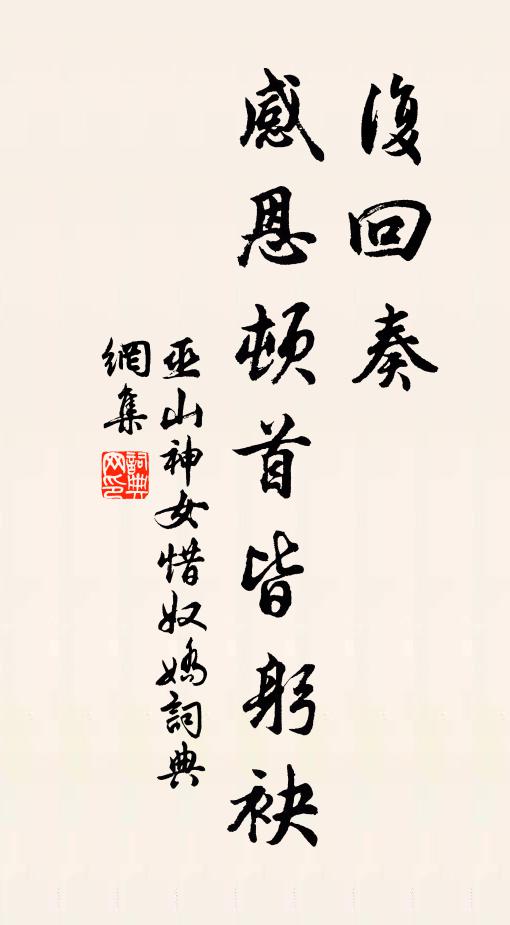 復回奏
感恩頓首皆躬袂
巫山神女惜奴嬌詞典
網集
詞典
网印